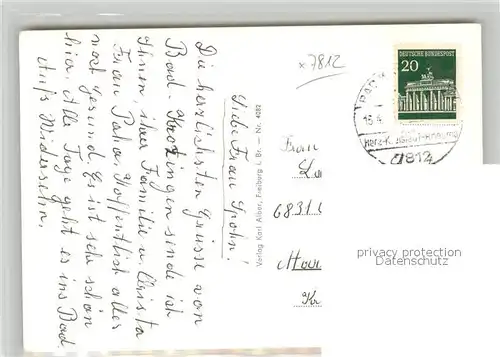 Liebe Frau Spohn!
Die herzlichsten Grüsse von
Bad. Krozingen sende ich
Ihnen, ihrer Familie u. Christa
Frau Pahor. Hoffentlich alles
noch gesund. Es ist sehr schön
hier. Alle Tage geht es ins Bad.
Aufs Wiedersehn.
Verlag Karl Alber, Freiburg i. Br. – Nr. 4082
x 7812
DEUTSCHE BUNDESPOST
20
7812
Frau
6831
privacy protection
Datenschutz